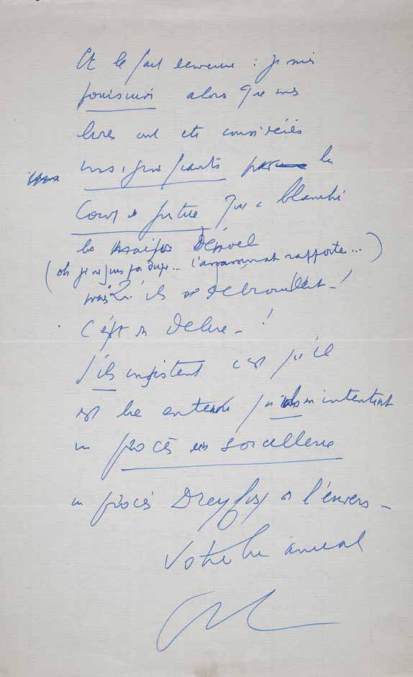 Et le fait : je suis
poursuivi alors que mes
livres ont été considérés
insignifiants par la
Cour de justice qui a blanchi
Denoel
(oh je ne suis pas dupe... l'argument rapporte...)
mais qu'ils se débrouillent - !
C'est du délire - !
S'ils insistent c'est qu'il
est bien entendu qu'ils m'intentent
un procès en sorcellerie
un procès Dreyfus à l'envers -
Votre bien amical